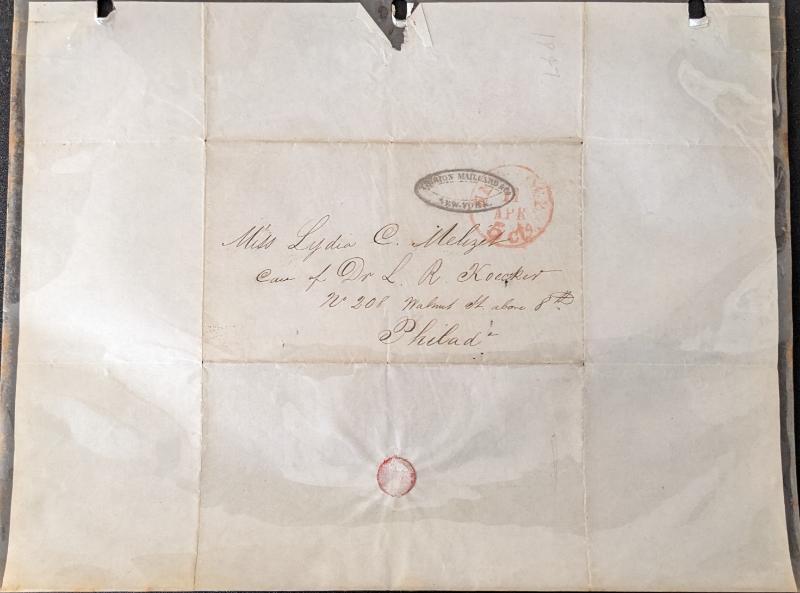 1847
MAILLARD & Co
NEW-YORK.
APR
5 Cts
Miss Lydia C. Melizet
Care of Dr L. R. Koecker
No 208 Walnut St above 8th
Philada